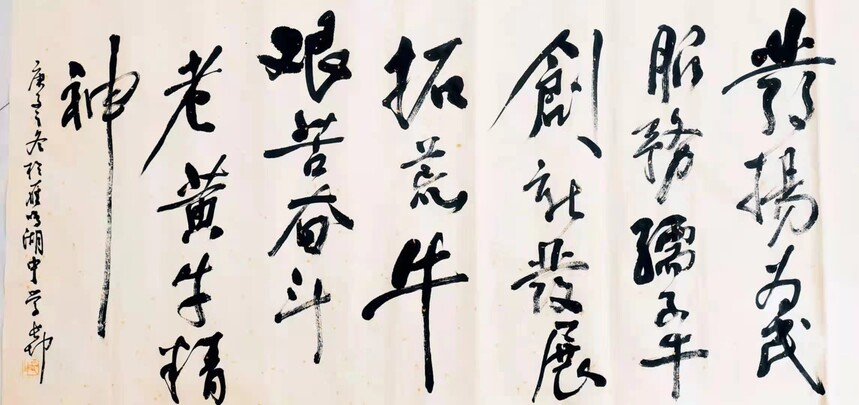 發揚為民
服務孺子牛
創新發展
拓荒牛
艰苦奋斗
老黄牛精
神
庚子之冬於雁鸣湖中学